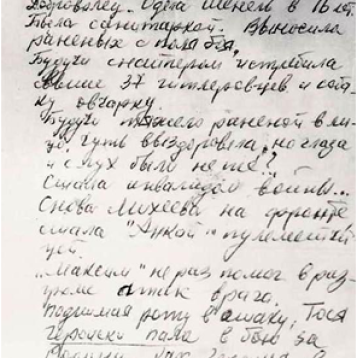 Доброволец. Одела шинель в 16 лет.
Была санитаркой. Выносила
раненых с поля боя.
Будучи снайпером истребила
свыше 37 гитлеровцев и соба-
ку овчарку.
Будучи тяжело раненой в ли-
цо, чуть выздоровела, но глаза
и слух были не те?
Стала инвалидом войны...
Снова Михеева на фронте
стала "Анкой" пулеметчи
цей.
"Максим" не раз помог в раз-
громе атак врага.
Поднимая роту в атаку, Тося
геройски пала в бою за